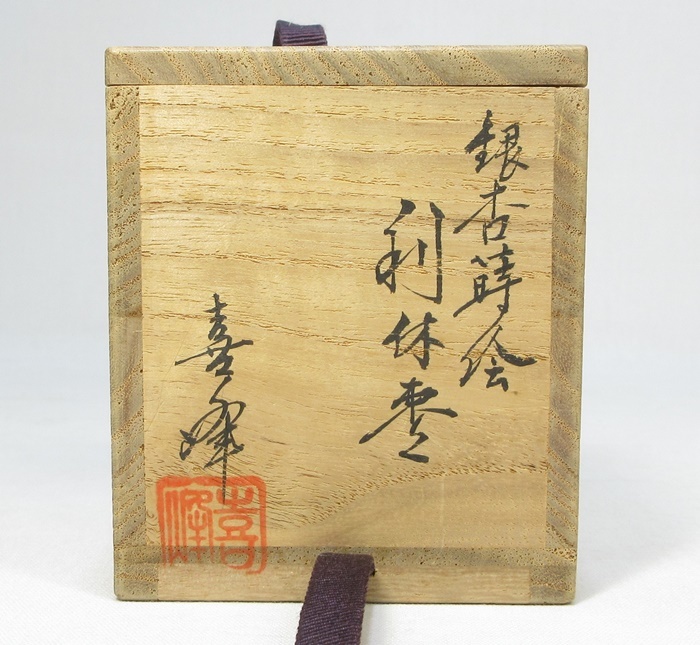 銀杏蒔絵
利休棗
喜峰
喜峰